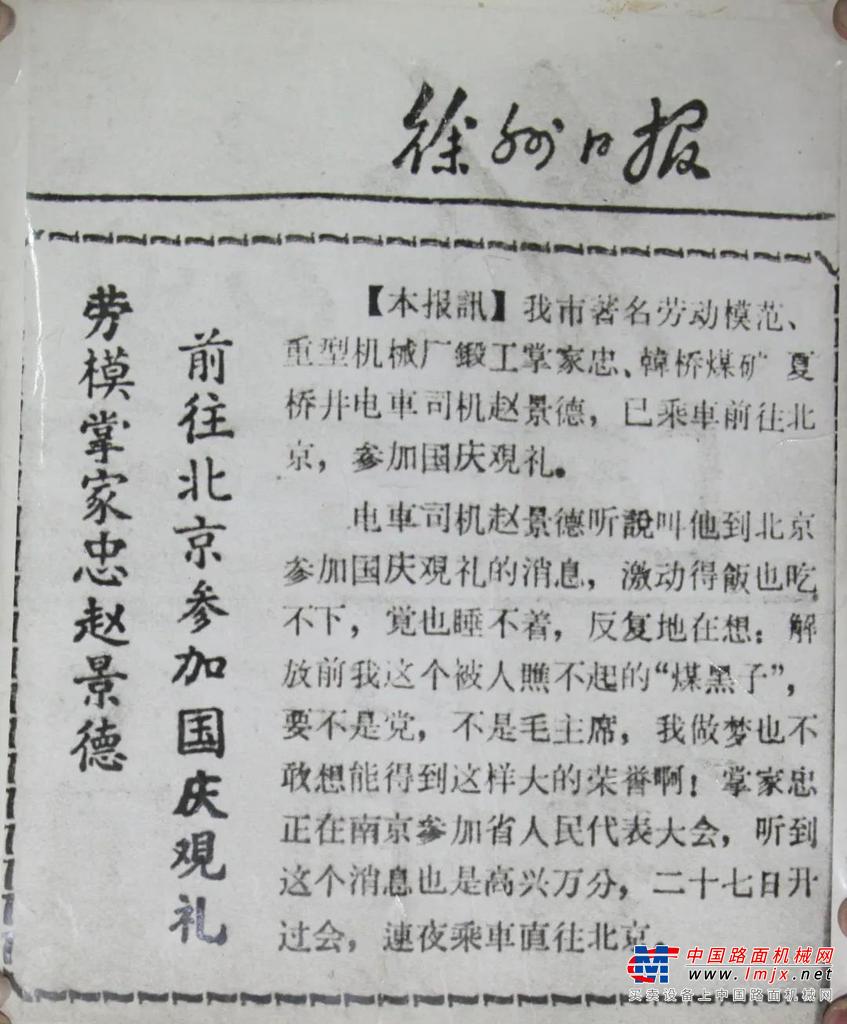 徐州日报
劳模掌家忠赵景德
前往北京参加国庆观礼
【本报訊】我市著名劳动模范、
重型机械厂鍛工掌家忠、韓桥煤矿夏
桥井电車司机赵景德，已乘車前往北
京，参加国庆观礼。
电車司机赵景德听說叫他到北京
参加国庆观礼的消息，激动得飯也吃
不下，覚也睡不着，反复地在想：解
放前我这个被人瞧不起的“煤黑子”，
要不是党，不是毛主席，我做梦也不
敢想能得到这样大的荣誉啊！掌家忠
正在南京参加省人民代表大会，听到
这个消息也是高兴万分，二十七日开
过会，連夜乘車直往北京。
中国路面机械网
www.lmjx.net
买卖设备上中国路面机械网